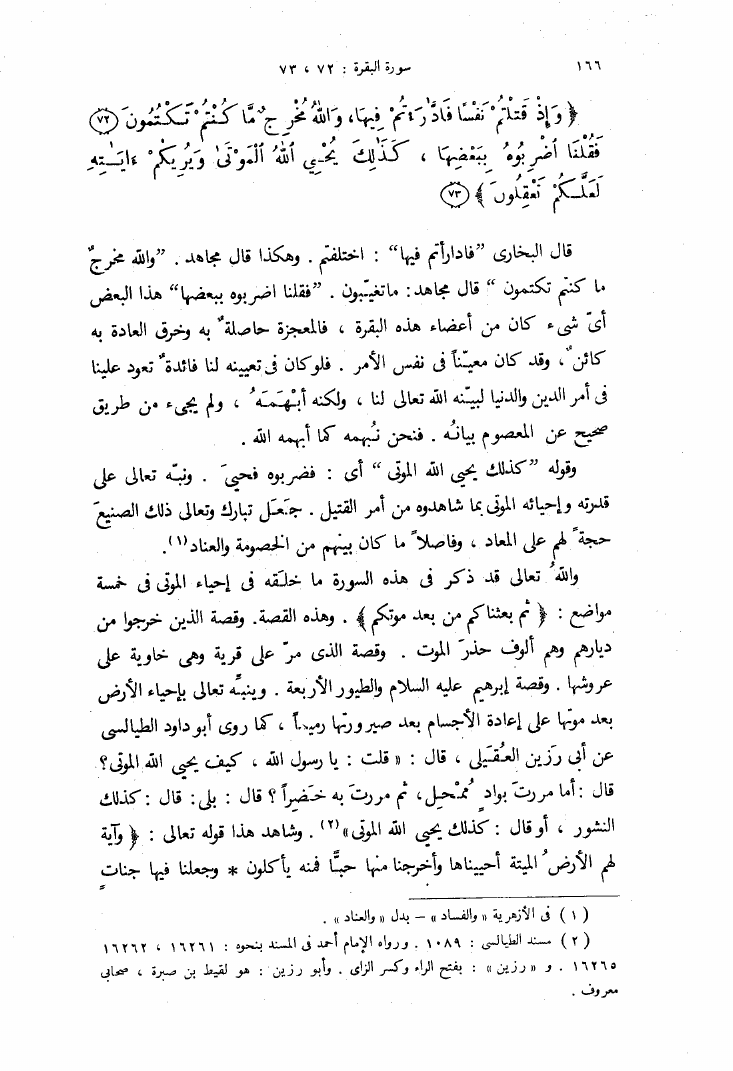 ١٦٦ سورة البقرة : ٧٢ ، ٧٣
﴿ وَإِذْ قَتَلْتُمْ نَفْسًا فَادَّارَءْتُمْ فِيهَا، وَاللهُ مُخْرِجٌ مَّا كُنْتُمْ تَكْتُمُونَ (٧٢)
فَقُلْنَا اضْرِبُوهُ بِبَعْضِهَا ، كَذَٰلِكَ يُحْيِي اللهُ الْمَوْتَىٰ وَيُرِيكُمْ ءَايَٰتِهِ
لَعَلَّكُمْ تَعْقِلُونَ ﴾ (٧٣)
قال البخارى ”فادارأتم فيها“ : اختلفتم . وهكذا قال مجاهد . ”والله مخرجٌ
ما كنتم تكتمون “ قال مجاهد: ماتغيّبون . ”فقلنا اضربوه ببعضها“ هذا البعض
أىّ شىء كان من أعضاء هذه البقرة ، فالمعجزة حاصلةٌ به وخرق العادة به
كائنٌ، وقد كان معيّناً فى نفس الأمر . فلو كان فى تعيينه لنا فائدةٌ تعود علينا
فى أمر الدين والدنيا لبيّنه الله تعالى لنا ، ولكنه أبْهَمَهُ ، ولم يجىء من طريق
صحيح عن المعصوم بيانُه . فنحن نُبهمه كما أبهمه الله .
وقوله ”كذلك يحيى الله الموتى“ أى : فضربوه فحيىَ . ونبّه تعالى على
قدرته وإحيائه الموتى بما شاهدوه من أمر القتيل . جَعَل تبارك وتعالى ذلك الصنيعَ
حجةً لهم على المعاد ، وفاصلاً ما كان بينهم من الخصومة والعناد(١).
واللهُ تعالى قد ذكر فى هذه السورة ما خلَقه فى إحياء الموتى فى خمسة
مواضع : ﴿ ثم بعثناكم من بعد موتكم ﴾ . وهذه القصة. وقصة الذين خرجوا من
ديارهم وهم ألوف حذرَ الموت . وقصة الذى مرّ على قرية وهى خاوية على
عروشها . وقصة إبرهيم عليه السلام والطيور الأربعة . وينبّه تعالى بإحياء الأرض
بعد موتها على إعادة الأجسام بعد صيرورتها رميماً ، كما روى أبو داود الطيالسى
عن أبى رَزين العُقَيلى ، قال : « قلت : يا رسول الله ، كيف يحيى الله الموتى؟
قال : أما مررت بوادٍ مُمْحِل، ثم مررت به خَضِراً ؟ قال : بلى: قال : كذلك
النشور ، أو قال : كذلك يحيى الله الموتى »(٢) . وشاهد هذا قوله تعالى : ﴿ وآية
لهم الأرضُ الميتة أحييناها وأخرجنا منها حبًّا فمنه يأكلون * وجعلنا فيها جناتٍ
( ١ ) فى الأزهرية « والفساد » – بدل « والعناد » .
( ٢ ) مسند الطيالسى : ١٠٨٩ . ورواه الإمام أحمد فى المسند بنحوه : ١٦٢٦١ ، ١٦٢٦٢
١٦٢٦٥ . و « رزين » : بفتح الراء وكسر الزاى . وأبو رزين : هو لقيط بن صبرة ، صحابى
معروف .